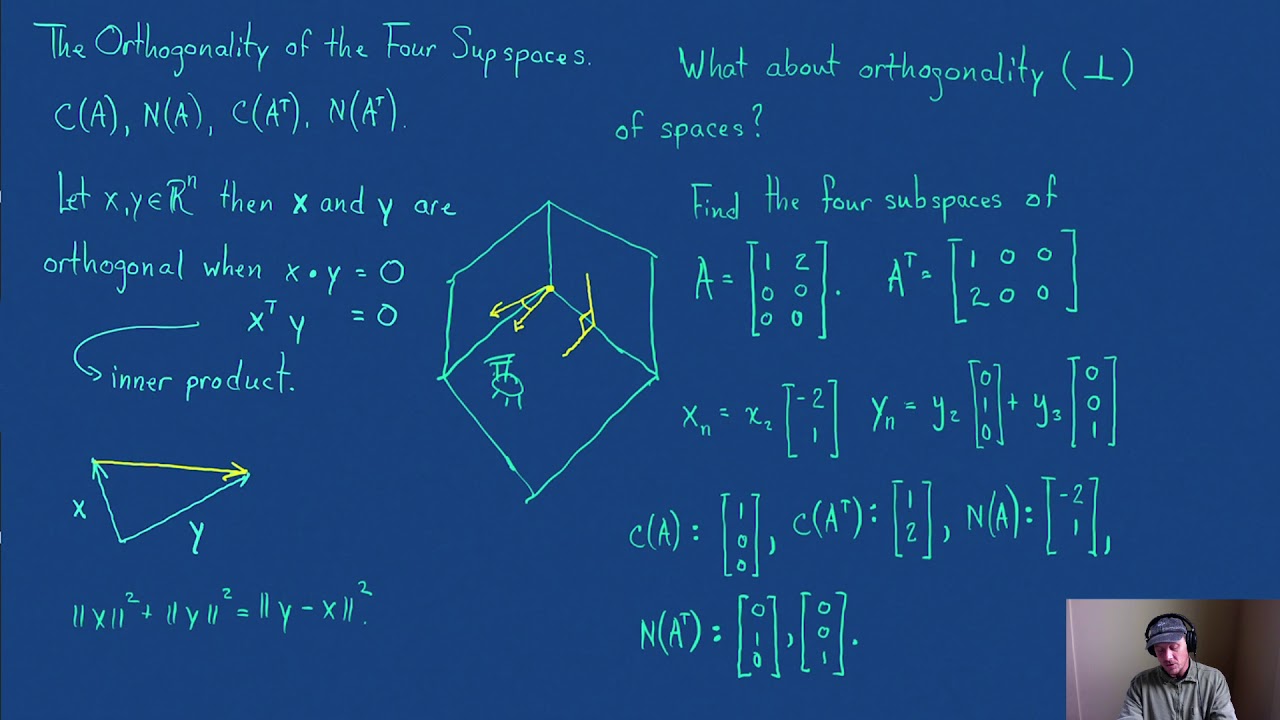 The Orthogonality of the Four Supspaces.
C(A), N(A), C(Aᵀ), N(Aᵀ).
Let x,y∈ℝⁿ then x and y are
orthogonal when x • y = 0
xᵀ y = 0
inner product.
x
y
||x||² + ||y||² = ||y - x||².
What about orthogonality (⊥)
of spaces?
Find the four subspaces of
A = [1 2; 0 0; 0 0]. Aᵀ = [1 0 0; 2 0 0]
xₙ = x₂ [-2; 1] yₙ = y₂ [0; 1; 0] + y₃ [0; 0; 1]
C(A): [1; 0; 0], C(Aᵀ): [1; 2], N(A): [-2; 1],
N(Aᵀ): [0; 1; 0], [0; 0; 1].